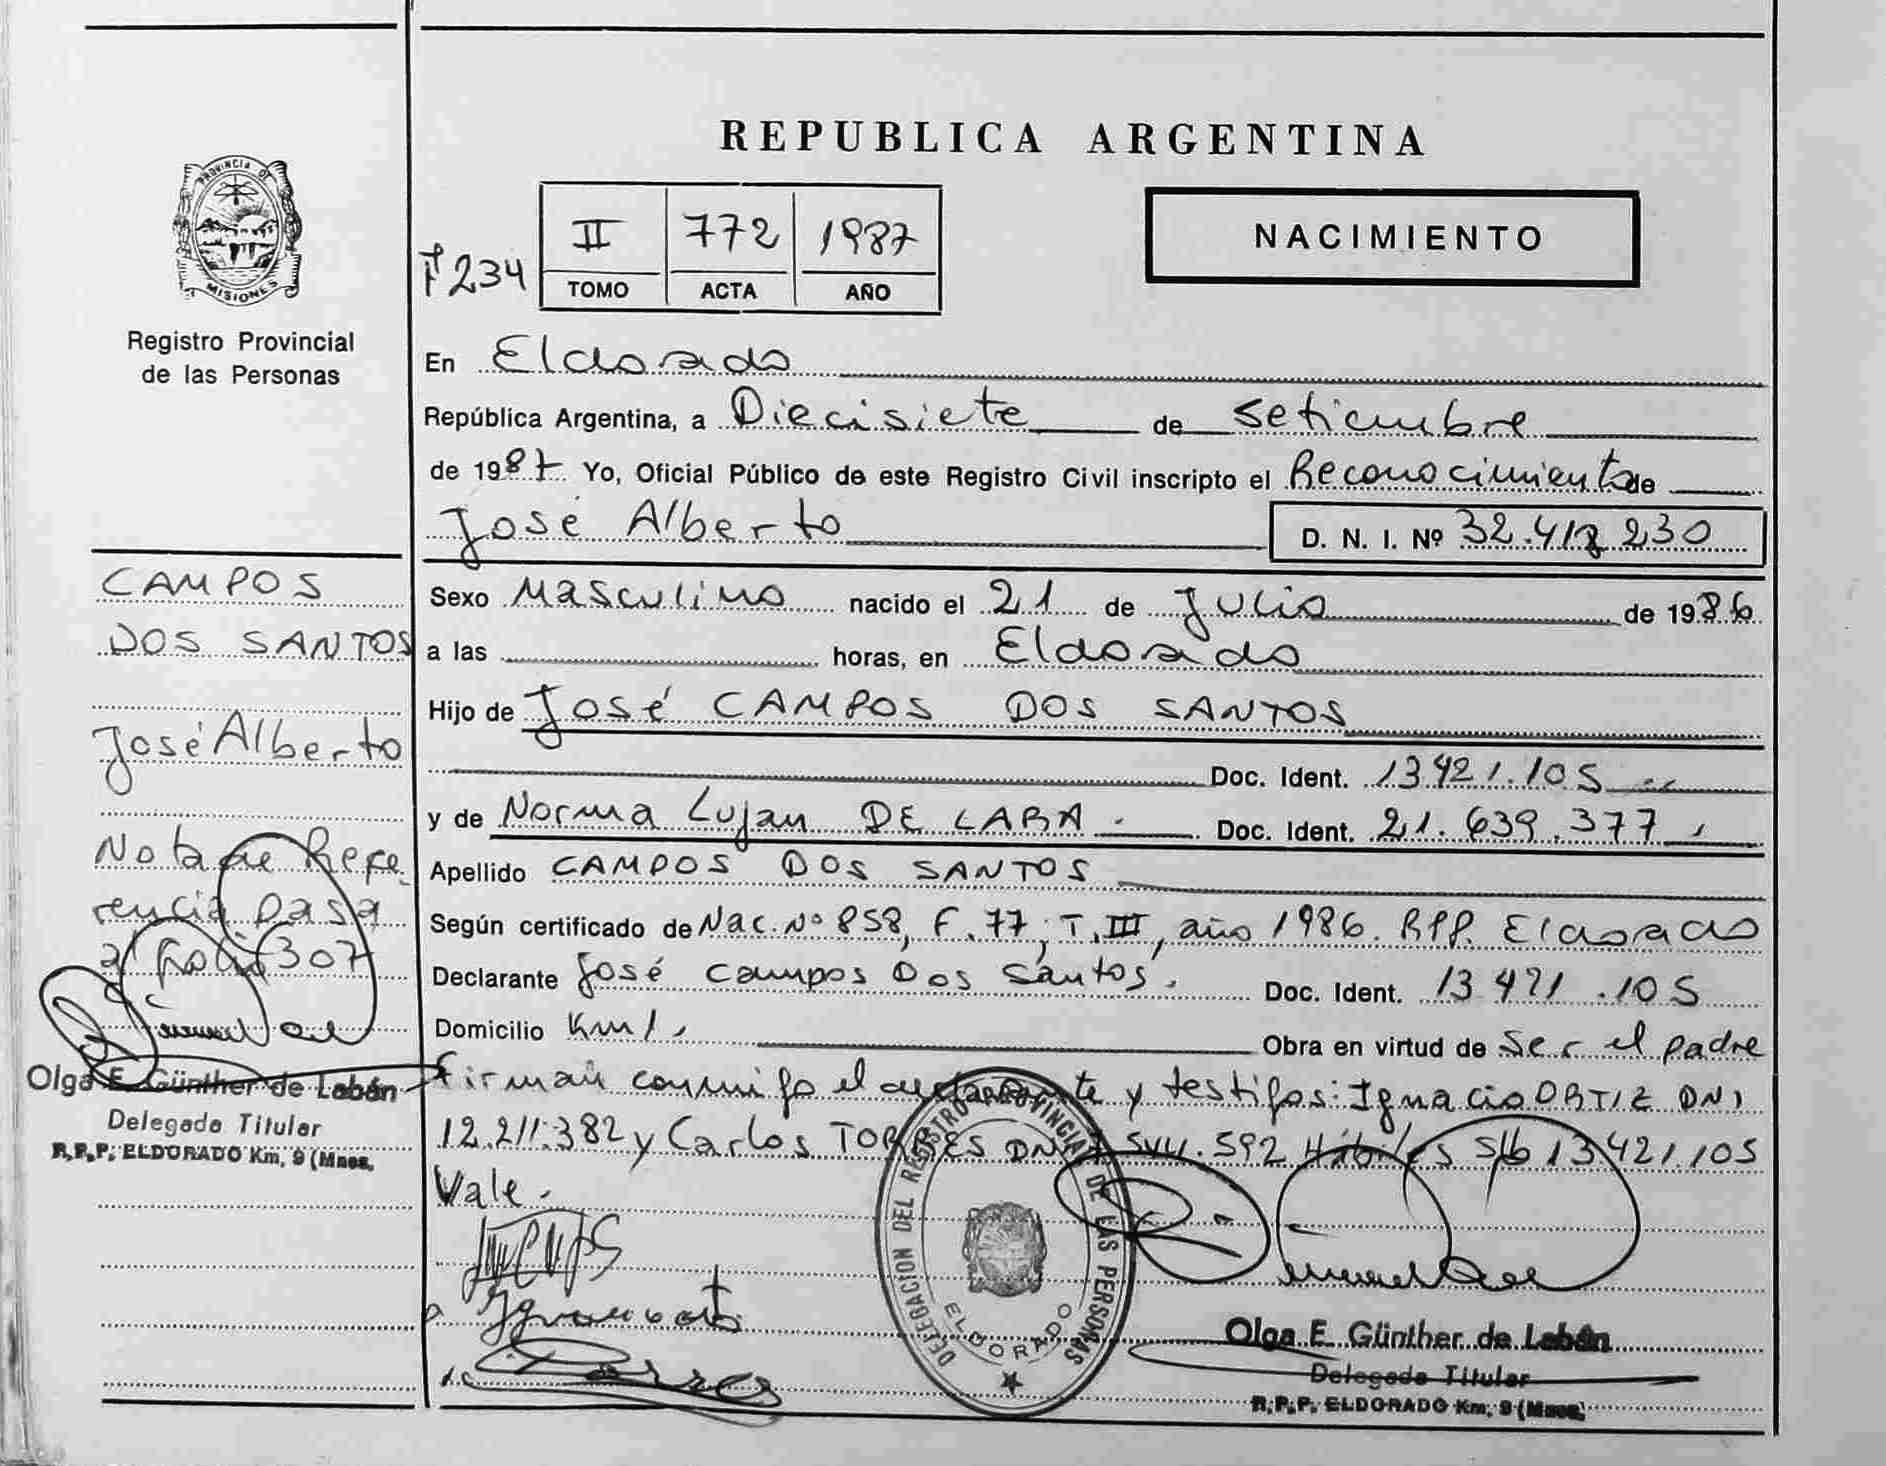 REPUBLICA ARGENTINA
PROVINCIA DE
MISIONES
Registro Provincial
de las Personas
F 234
II 772 1987
TOMO ACTA AÑO
NACIMIENTO
En Eldorado
República Argentina, a Diecisiete de Setiembre
de 1987 Yo, Oficial Público de este Registro Civil inscripto el Reconocimiento de
José Alberto D. N. I. Nº 32.412 230
CAMPOS
DOS SANTOS
José Alberto
Nota de Refe
rencia pasa
a folio 307
Olga E. Günther de Labán
Delegada Titular
R.P.P. ELDORADO Km. 9 (Mnes.
Sexo Masculino nacido el 21 de Julio de 1986
a las horas, en Eldorado
Hijo de José CAMPOS DOS SANTOS
Doc. Ident. 13.421.105
y de Norma Lujan DE LARA . Doc. Ident. 21.639.377
Apellido CAMPOS DOS SANTOS
Según certificado de Nac. Nº 858, F. 77, T. III, año 1986. RPP. Eldorado
Declarante José Campos Dos Santos. Doc. Ident. 13 421 .105
Domicilio Km 1. Obra en virtud de Ser el padre
Firman conmigo el declarante y testigos: Ignacio ORTIZ DNI
12.211.382 y Carlos TORRES DNI 592 Hábiles S/b 13.421.105
Vale.
DELEGACION DEL REGISTRO PROVINCIAL DE LAS PERSONAS
ELDORADO
Olga E. Günther de Labán
Delegada Titular
R.P.P. ELDORADO Km. 9 (Mnes.